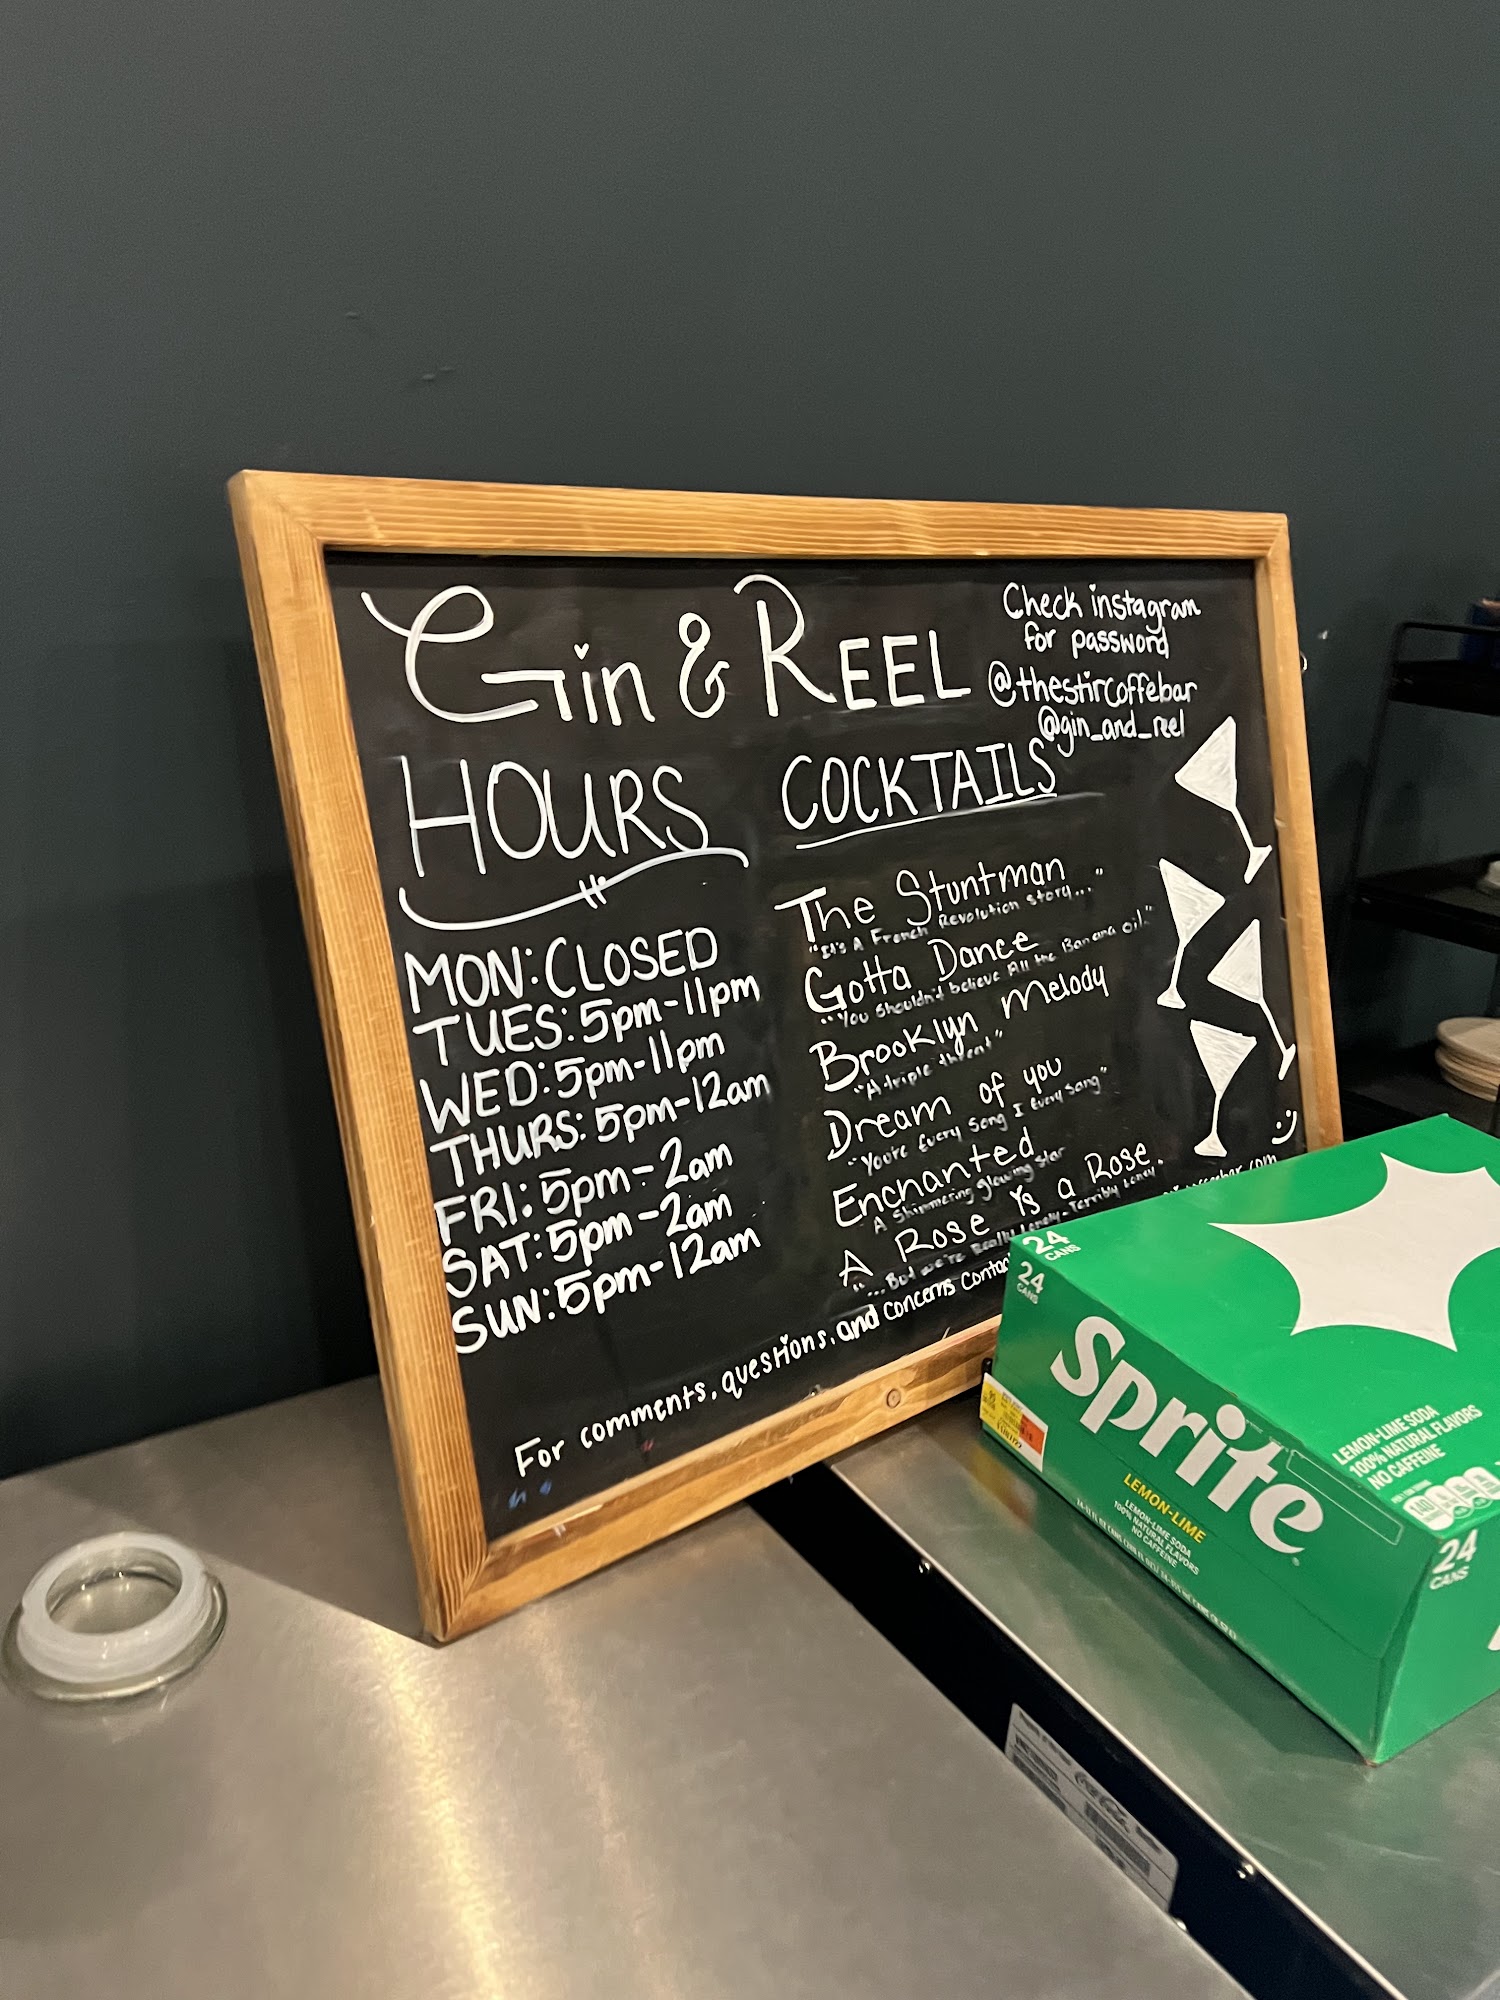 Gin & REEL
Check instagram
for password
@thestircoffebar
@gin_and_reel
HOURS
MON: CLOSED
TUES: 5pm-11pm
WED: 5pm-11pm
THURS: 5pm-12am
FRI: 5pm-2am
SAT: 5pm-2am
SUN: 5pm-12am
COCKTAILS
The Stuntman
"It's A French Revolution story..."
Gotta Dance
"You shouldn't believe All the Banana oil."
Brooklyn Melody
"A triple threat"
Dream of you
"You're Every Song I Every Sang"
Enchanted
A Shimmering glowing star
A Rose Is a Rose
"...But we're Really Lonely-Terribly Lonely."
For comments, questions, and concerns
24
CANS
24
CANS
Sprite
LEMON-LIME
LEMON-LIME SODA
100% NATURAL FLAVORS
NO CAFFEINE
LEMON-LIME SODA
100% NATURAL FLAVORS
NO CAFFEINE
140
24
CANS